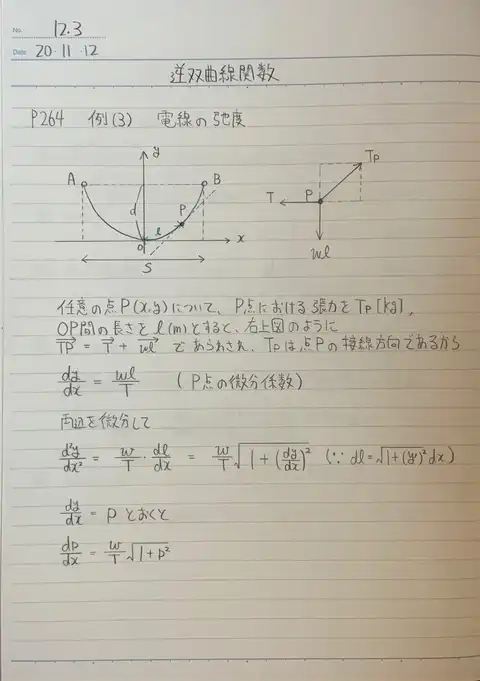 No. 12.3
Date 20・11・12
逆双曲線関数
P264 例(3) 電線の弛度
y
A
B
d
l
P
O
x
S
Tp
T
P
wl
任意の点P(x,y)について、P点における張力をTp[kg],
OP間の長さをl(m)とすると、右上図のように
→TP = →T + →wl であらわされ、Tpは点Pの接線方向であるから
dy/dx = wl/T (P点の微分係数)
両辺を微分して
d²y/dx² = w/T・dl/dx = w/T √(1+(dy/dx)²) (∵ dl=√(1+(y')²) dx)
dy/dx = p とおくと
dp/dx = w/T √(1+p²)